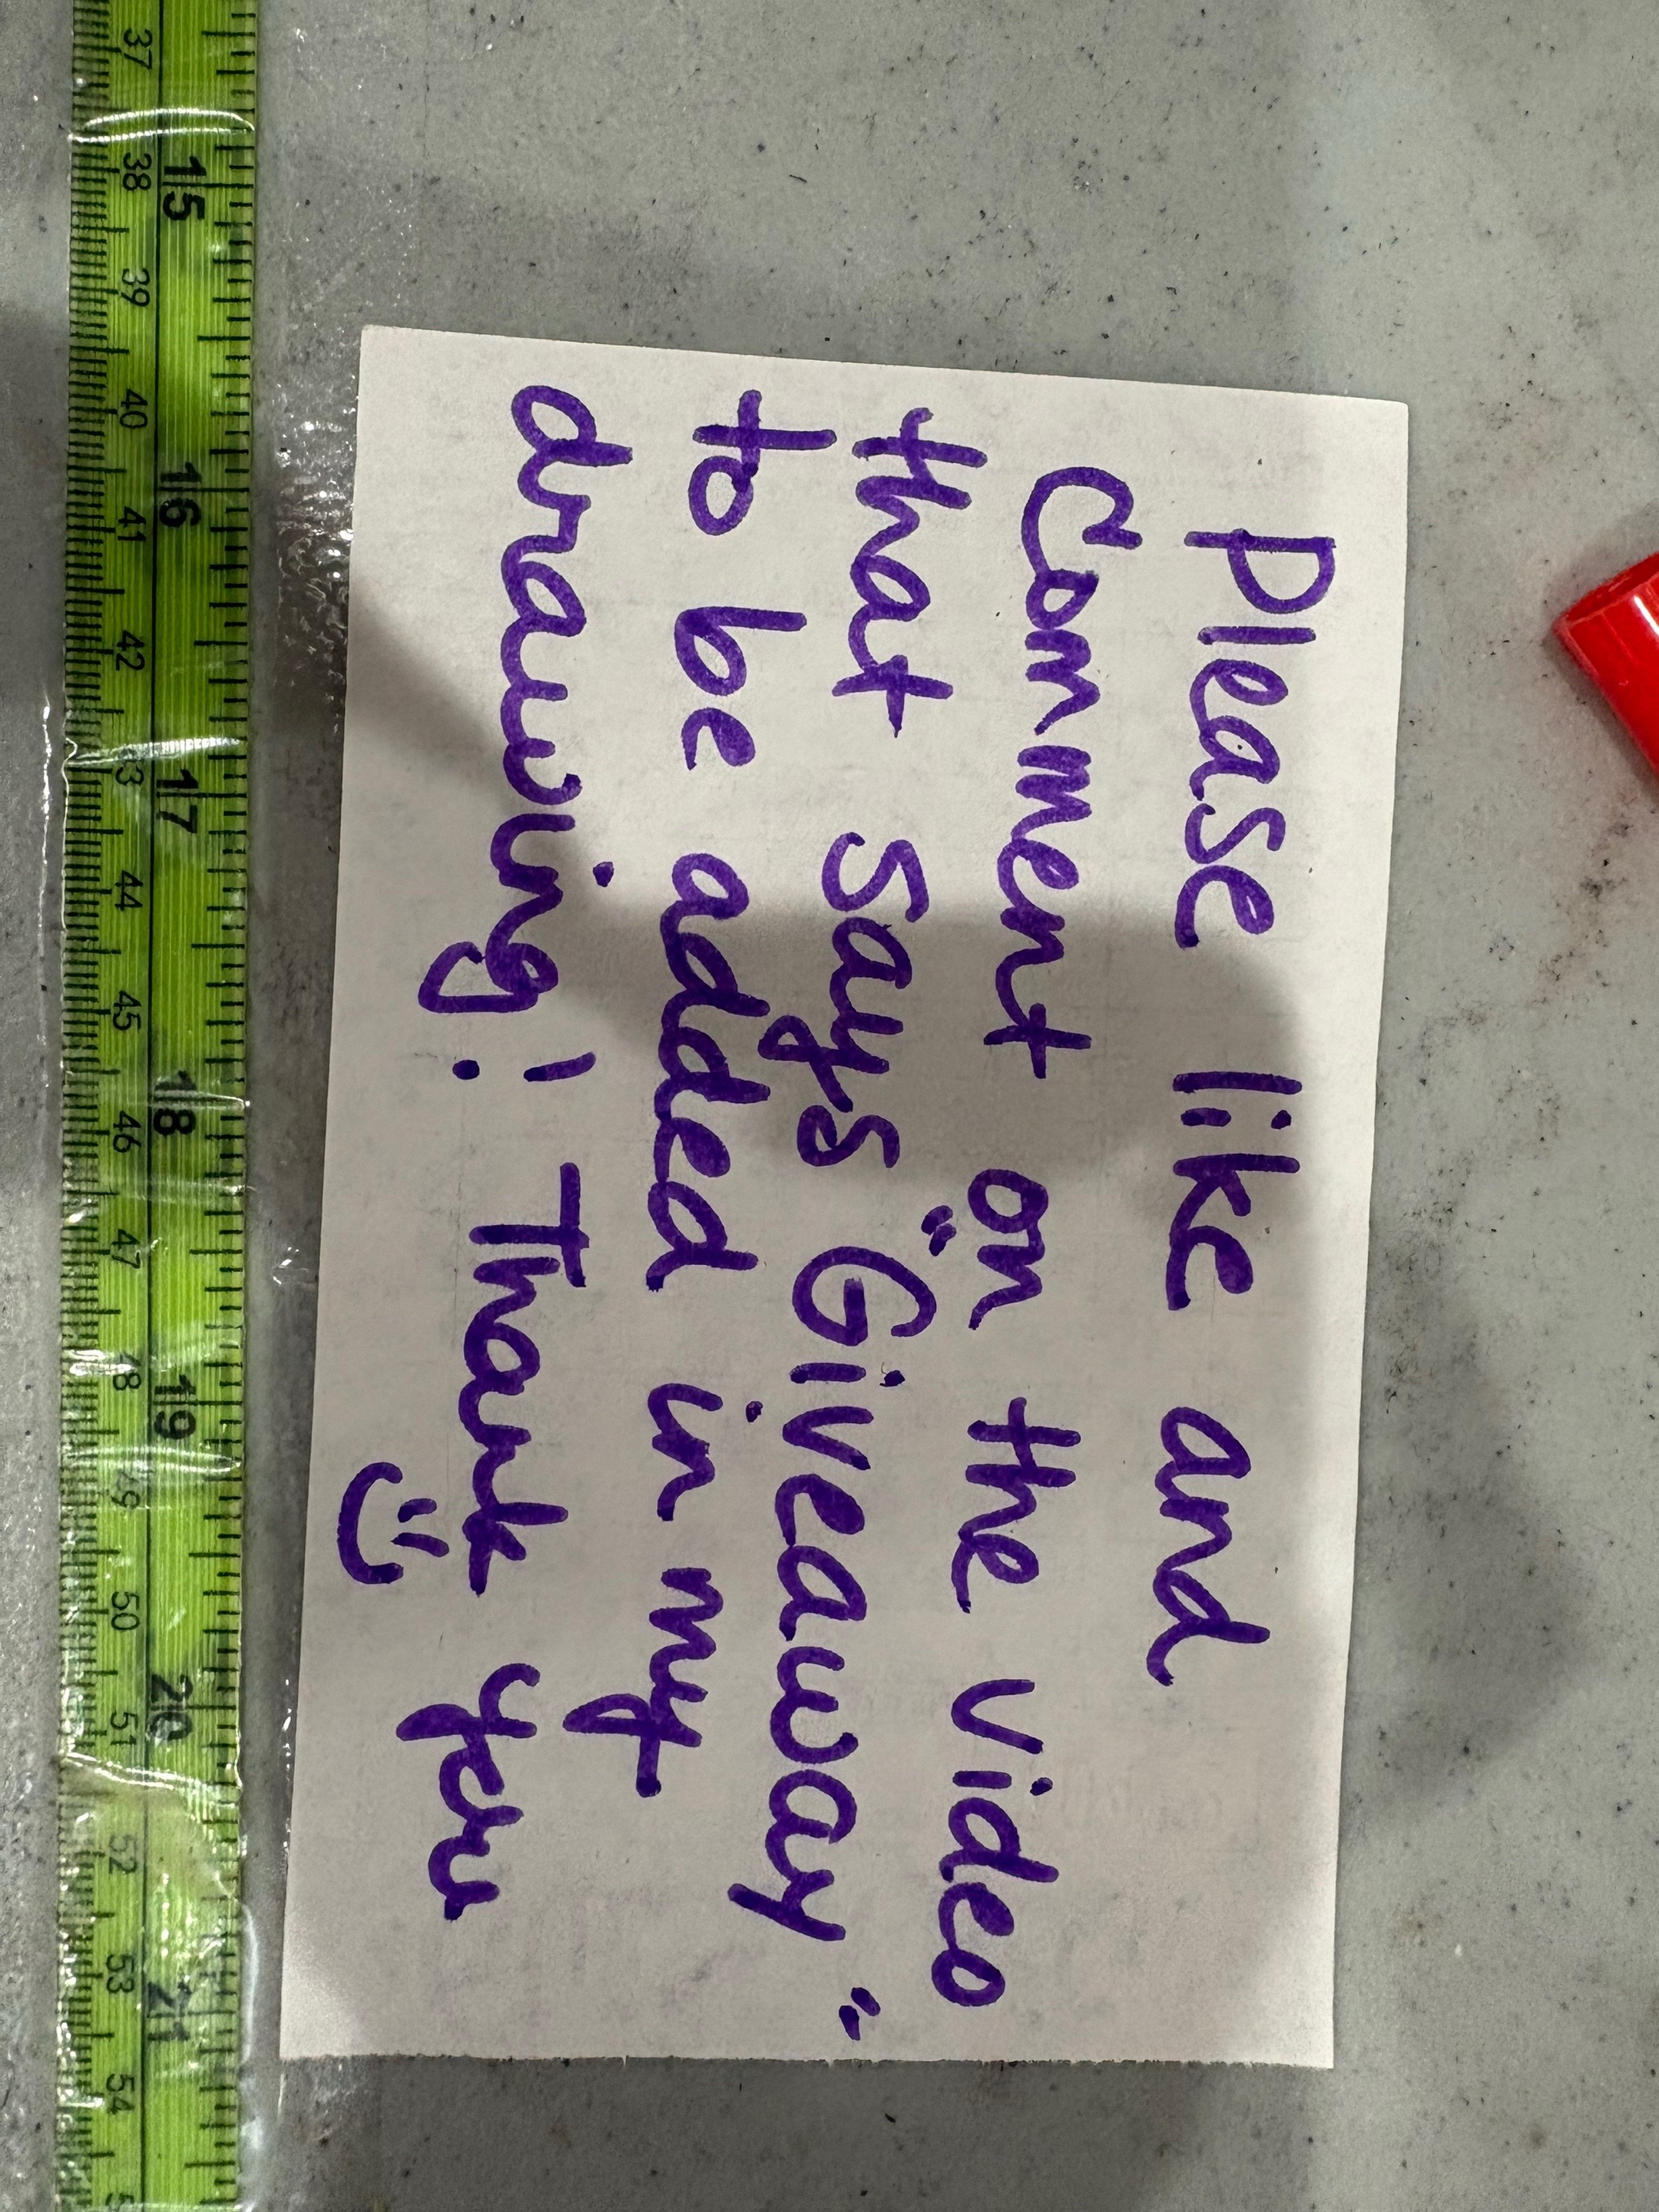 Please like and
Comment on the video
that says "Giveaway"
to be added in my
drawing! Thank you
37
38
39
40
41
42
43
44
45
46
47
48
49
50
51
52
53
54
15
16
17
18
19
20
21